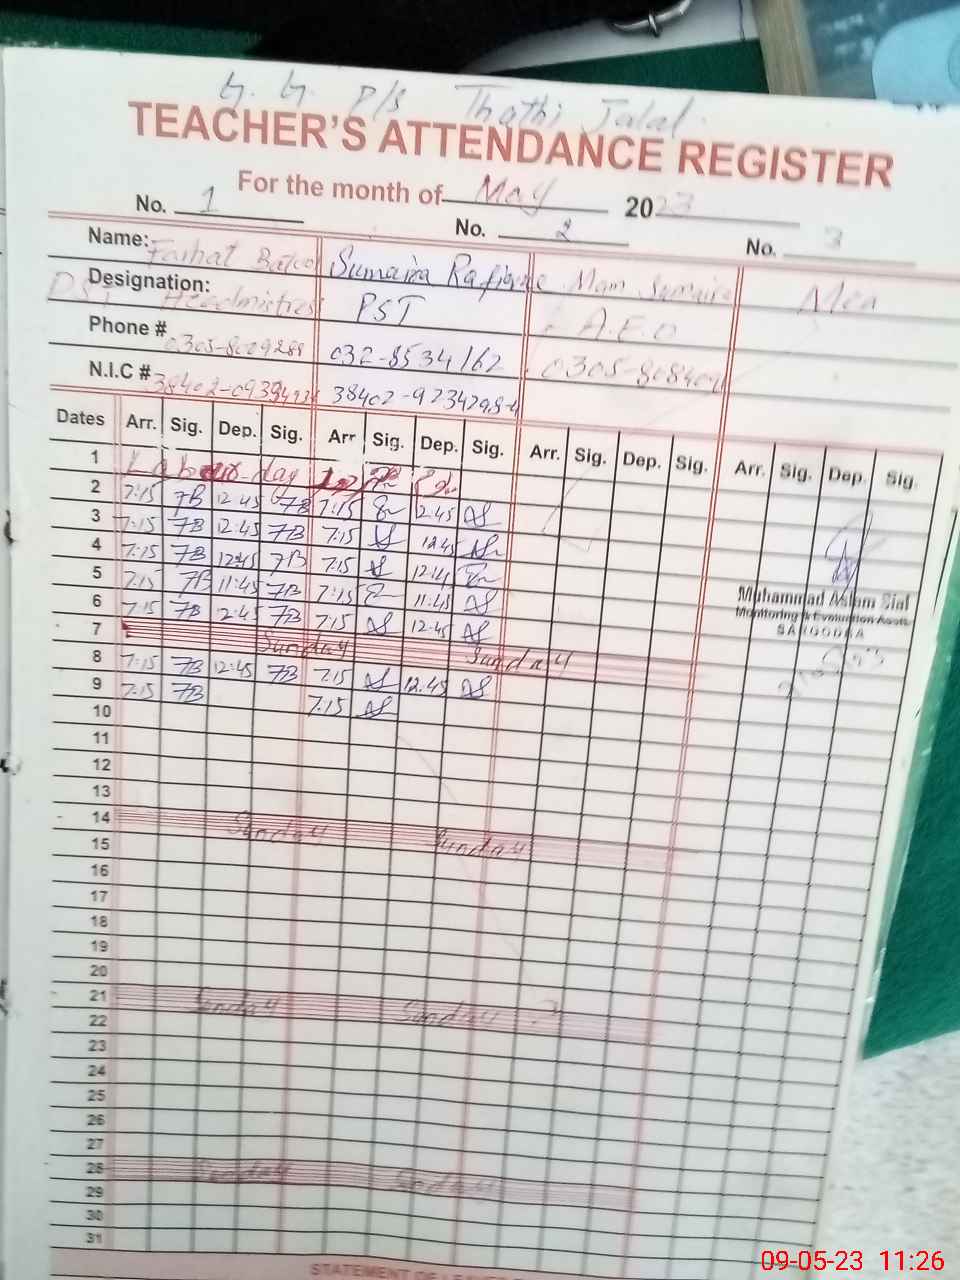 G. G. P/S Thathi Jalal.
TEACHER'S ATTENDANCE REGISTER
For the month of May 2023
No. 1 No. 2 No. 3
Name: Farhat Sumaira Rafique Mam Sumaira Mea
Designation: PST Headmistress PST A.E.O
Phone # 0305-8009288 032-8534162
N.I.C #
Dates Arr. Sig. Dep. Sig. Arr Sig. Dep. Sig. Arr. Sig. Dep. Sig. Arr. Sig. Dep. Sig.
1 Labour day
2 7:15 FB 12:45 FB 7:15 12:45
3 7:15 FB 12:45 FB 7:15 12:45
4 7:15 FB 12:45 FB 7:15
5 7:15 FB 11:45 FB 7:15 11:45
6 7:15 FB 12:45 FB 7:15 12:45
Muhammad Aslam Sial
Monitoring & Evaluation Asstt.
SARGODHA
7 Sunday Sunday
8 7:15 FB 12:45 FB 7:15 12:45
9 7:15 FB 7:15
10
11
12
13
14 Sunday Sunday
15
16
17
18
19
20
21 Sunday Sunday
22
23
24
25
26
27
28 Sunday Sunday
29
30
31
STATEMENT OF LEAVES
09-05-23 11:26